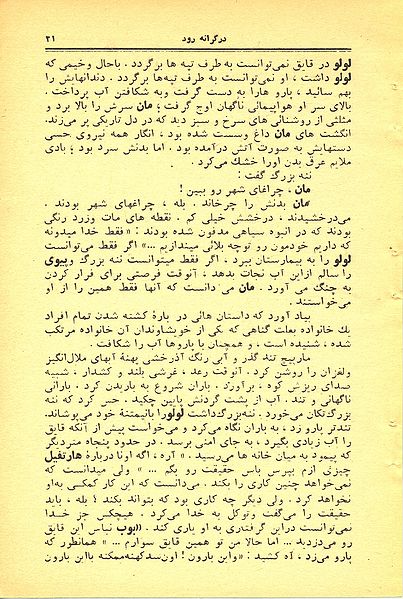 در کرانه رود
۲۱
لولو در قایق نمی‌توانست به طرف تپه ها برگردد . باحال وخیمی که
لولو داشت ، او نمی‌توانست به طرف تپه‌ها برگردد . دندانهایش را
بهم سائید ، پارو هارا به دست گرفت وبه شکافتن آب پرداخت .
بالای سر او هواپیمائی ناگهان اوج گرفت ؛ مان سرش را بالا برد و
مثلثی از روشنائی های سرخ و سبز دید که در دل تاریکی پر می‌زند.
انگشت های مان داغ وسست شده بود ، انگار همه نیروی حسی
دستهایش به صورت آتش درآمده بود . اما بدنش سرد بود ؛ بادی
ملایم عرق بدن اورا خشك می‌کرد .
ننه بزرگ گفت :
مان ، چراغای شهر رو ببین !
مان بدنش را چرخاند . بله ، چراغهای شهر بودند .
می‌درخشیدند ، درخشش خیلی کم . نقطه های مات وزرد رنگی
بودند که در انبوه سیاهی مدفون شده بودند : «فقط خدا میدونه
که داریم خودمون رو توچه بلائی میندازیم ...» اگر فقط می‌توانست
لولو را به بیمارستان ببرد ، اگر فقط میتوانست ننه بزرگ وپیوی
را سالم ازاین آب نجات بدهد ، آنوقت فرصتی برای فرار کردن
به چنگ می آورد . مان می دانست که آنها فقط همین را از او
می‌خواستند .
بیاد آورد که داستان هائی در بارهٔ کشته شدن تمام افراد
یك خانواده بعلت گناهی که یکی از خویشاوندان آن خانواده مرتکب
شده ، شنیده است ، و همچنان با پاروها آب را شکافت .
مارپیچ تند گذر و آبی رنگ آذرخشی پهنهٔ آبهای ملال‌انگیز
ولغزان را روشن کرد . آنوقت رعد ، غرشی بلند و کشدار ، شبیه
صدای ریزش کوه ، برآورد . باران شروع به باریدن کرد . بارانی
ناگهانی و تند . آب از پشت گردنش پایین چکید . حس کرد که ننه
بزرگ‌تکان می‌خورد . ننه‌بزرگ‌داشت لولورا بانیمتنهٔ خود می‌پوشاند.
تندتر پارو زد ، به باران نگاه می‌کرد و می‌خواست پیش از آنکه قایق
را آب زیادی بگیرد ، به جای امنی برسد . در حدود پنجاه متردیگر
که پیمود به میان خانه ها می‌رسید . « آره ، اگه اونا دربارهٔ هارتفیل
چیزی ازم بپرس باس حقیقت رو بگم ... » ولی میدانست که
نمی‌خواهد چنین کاری را بکند . می‌دانست که این کار کمکی به‌او
نخواهد کرد . ولی دیگر چه کاری بود که بتواند بکند ؛ بله ، باید
حقیقت را می‌گفت وتوکل به خدا می‌کرد . هیچکس جز خدا
نمی‌توانست دراین گرفتاری به او یاری کند . «بوب نباس این قایق
رو می‌دزدید ... اما حالا من تو همین قایق سوارم ... » همانطور که
پارو می‌زد ، آه کشید : «واین بارون ! اون‌سدکهنه‌ممکنه بااین بارون